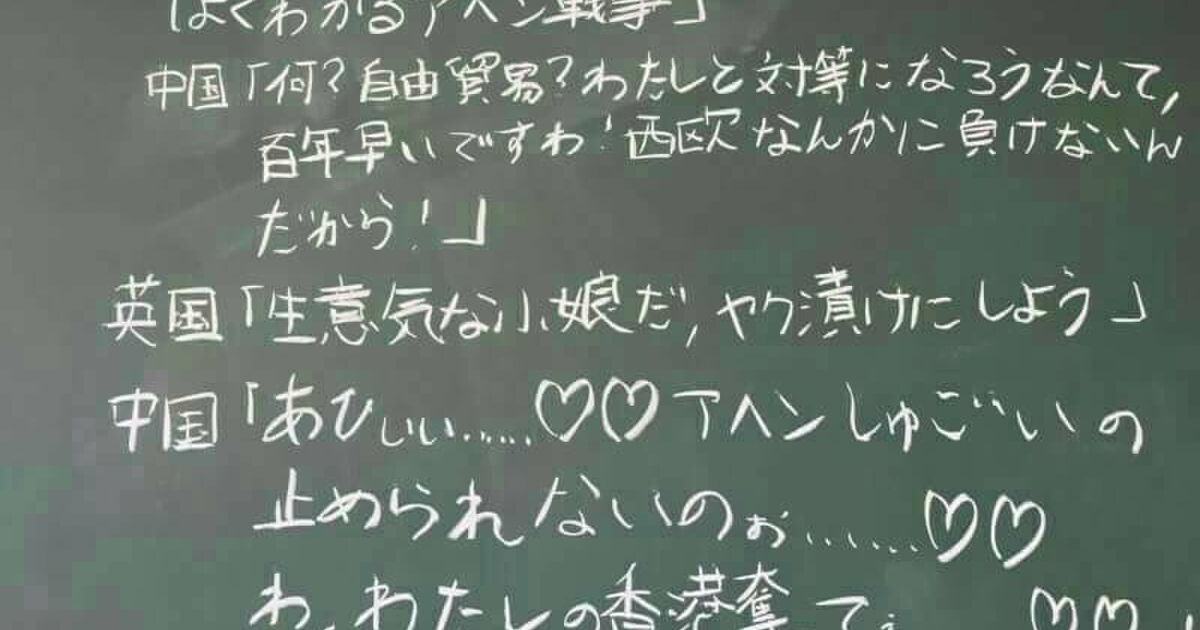 「よくわかるアヘン戦争」
中国「何?自由貿易?わたしと対等になろうなんて,
百年早いですわ!西欧なんかに負けないん
だから!」
英国「生意気な小娘だ,ヤク漬けにしよう」
中国「あひぃぃ……♡♡アヘンしゅごいの
止められないのぉ……♡♡
わ,わたしの香港奪ってぇ ♡♡」